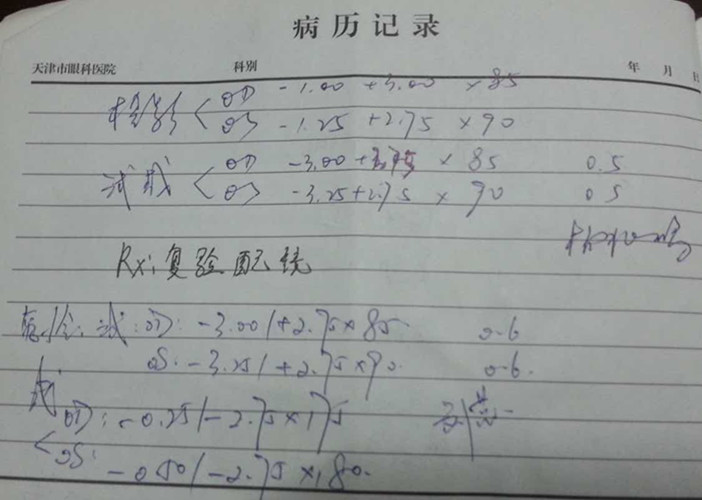 病历记录
天津市眼科医院 科别 年 月 日
检影 OD -1.00 +3.00 ×85
OS -1.25 +2.75 ×90
试戴 OD -3.00 + ×85 0.5
OS -3.25+2.75 × 90 0.5
Rx: 复验配镜
试:OD: -3.00/+2.75×85 0.6
OS: -3.25/+2.75×90. 0.6.
或 OD: -0.25/-2.75×175
OS: -0.50/-2.75×180.